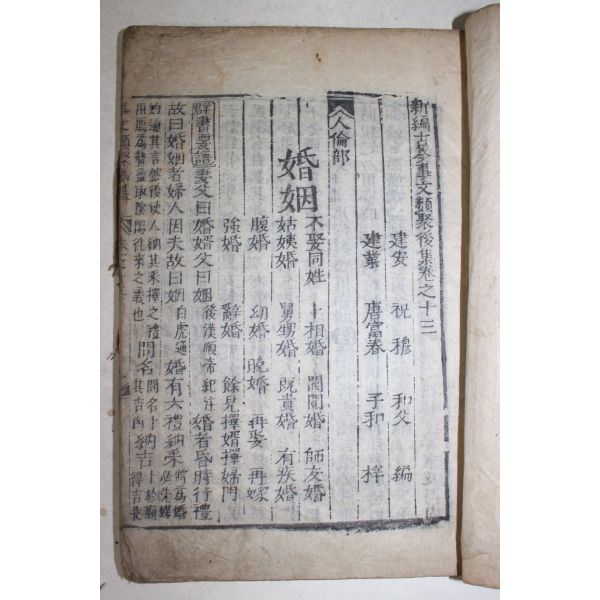 新編古今事文類聚後集卷之十三
建安 祝穆 和父 編
建業 唐富春 子和 梓
人倫部
婚姻
不娶同姓 卜相婚 閥閱婚 師友婚
姑姨婚 舅甥婚 既貴婚 有疾婚
腹婚 幼婚 晚婚 再娶 再嫁
強婚 辭婚 餘見擇婿擇婦門
群書要語 妻父曰婚婿父曰姻 後漢順帝紀注 婚者昏時行禮
故曰婚姻者婦人因夫故曰姻 白虎通 婚有六禮納采 將為婚必先媒
妁通其言然後使人納其采擇之禮 問名 問名卜於廟
用鴈為贄盖取陰陽往來之義也 其吉凶 納吉 得吉兆